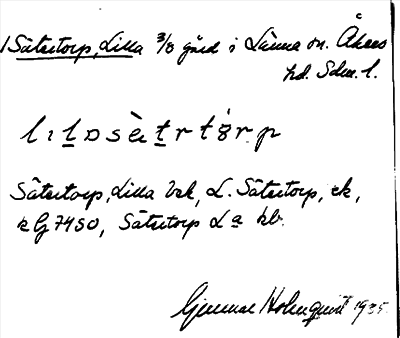 Sätertorp, Lilla 3/8 gård i Länna sn. Åkers
hd. Sdm. l.
Sätertorp, Lilla bek, L. Sätertorp, ek,
k Gj 7450, Sätertorp La kb.
Gunnar Holmquist 1935